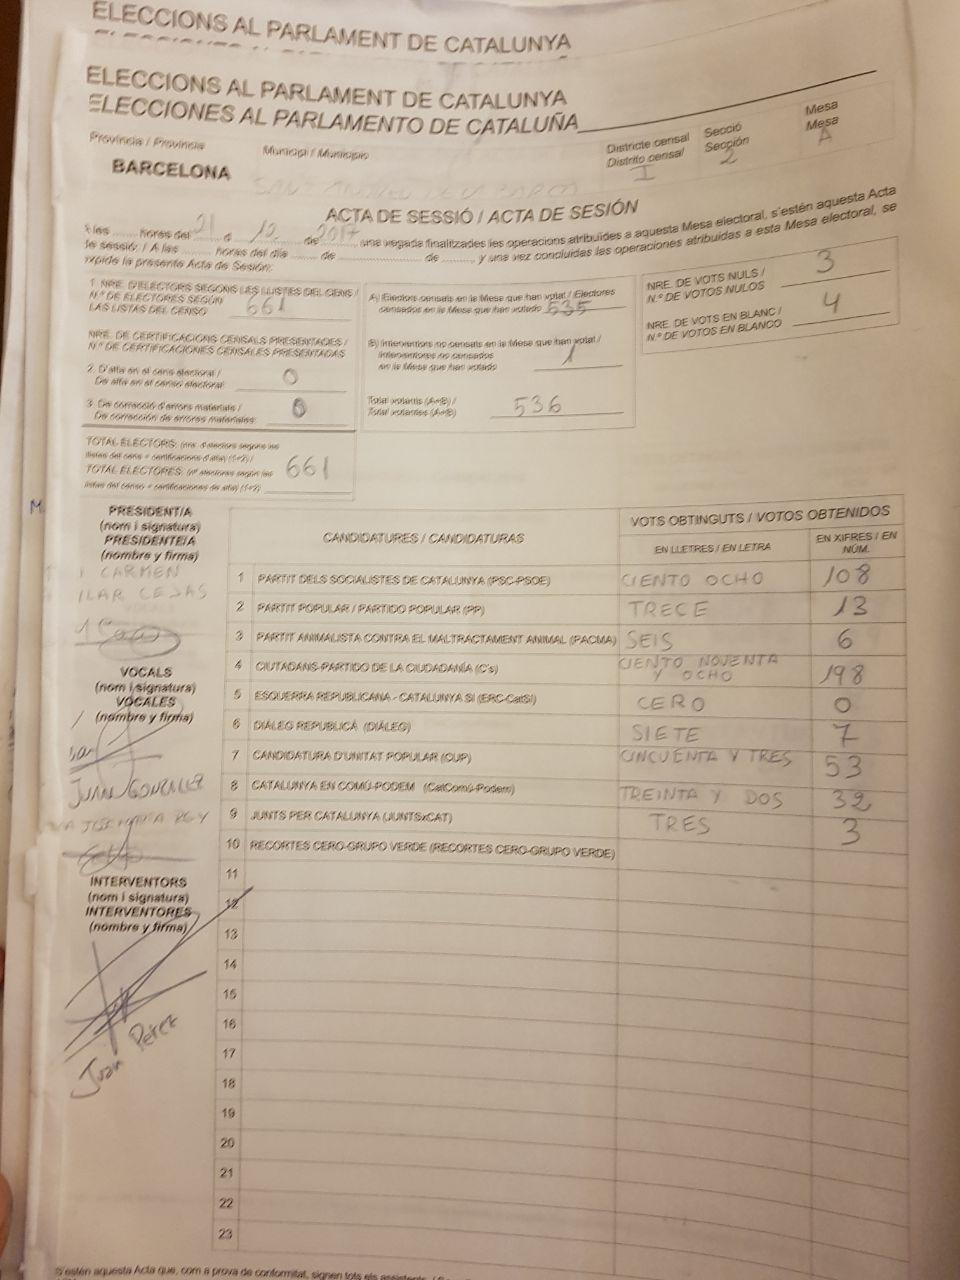 ELECCIONS AL PARLAMENT DE CATALUNYA
ELECCIONS AL PARLAMENT DE CATALUNYA
ELECCIONES AL PARLAMENTO DE CATALUÑA
Província / Provincia
Municipi / Municipio
Districte censal
Distrito censal
I
Secció
Sección
2
Mesa
Mesa
A
BARCELONA
ACTA DE SESSIÓ / ACTA DE SESIÓN
hores del 21 d 12 de 2017, una vegada finalitzades les operacions atribuïdes a aquesta Mesa electoral, s'estén aquesta Acta
de sessió / A las horas del día de de , y una vez concluidas las operaciones atribuidas a esta Mesa electoral, se
expide la presente Acta de Sesión:
1. NRE. D'ELECTORS SEGONS LES LLISTES DEL CENS /
N.º DE ELECTORES SEGÚN
LAS LISTAS DEL CENSO 661
NRE. DE CERTIFICACIONS CENSALS PRESENTADES /
N.º DE CERTIFICACIONES CENSALES PRESENTADAS
2. D'alta en el cens electoral /
De alta en el censo electoral: 0
3. De correcció d'errors materials /
De corrección de errores materiales: 0
TOTAL ELECTORS: (nre. d'electors segons les
llistes del cens + certificacions d'alta) (1+2) /
TOTAL ELECTORES: (nº electores según las
listas del censo + certificaciones de alta) (1+2) 661
A) Electors censats en la Mesa que han votat / Electores
censados en la Mesa que han votado 535
B) Interventors no censats en la Mesa que han votat /
Interventores no censados
en la Mesa que han votado 1
Total votants (A+B) /
Total votantes (A+B) 536
NRE. DE VOTS NULS /
N.º DE VOTOS NULOS 3
NRE. DE VOTS EN BLANC /
N.º DE VOTOS EN BLANCO 4
PRESIDENT/A
(nom i signatura)
PRESIDENTE/A
(nombre y firma)
CARMEN
VOCALS
(nom i signatura)
VOCALES
(nombre y firma)
JUAN GONZALEZ
INTERVENTORS
(nom i signatura)
INTERVENTORES
(nombre y firma)
Juan Perez
CANDIDATURES / CANDIDATURAS
VOTS OBTINGUTS / VOTOS OBTENIDOS
EN LLETRES / EN LETRA
EN XIFRES / EN NÚM.
1 PARTIT DELS SOCIALISTES DE CATALUNYA (PSC-PSOE) CIENTO OCHO 108
2 PARTIT POPULAR / PARTIDO POPULAR (PP) TRECE 13
3 PARTIT ANIMALISTA CONTRA EL MALTRACTAMENT ANIMAL (PACMA) SEIS 6
4 CIUTADANS-PARTIDO DE LA CIUDADANÍA (C's) CIENTO NOVENTA Y OCHO 198
5 ESQUERRA REPUBLICANA - CATALUNYA SÍ (ERC-CatSí) CERO 0
6 DIÀLEG REPUBLICÀ (DIÀLEG) SIETE 7
7 CANDIDATURA D'UNITAT POPULAR (CUP) CINCUENTA Y TRES 53
8 CATALUNYA EN COMÚ-PODEM (CatComú-Podem) TREINTA Y DOS 32
9 JUNTS PER CATALUNYA (JUNTSxCAT) TRES 3
10 RECORTES CERO-GRUPO VERDE (RECORTES CERO-GRUPO VERDE)
11
12
13
14
15
16
17
18
19
20
21
22
23
S'estén aquesta Acta que, com a prova de conformitat, signen tots els assistents.